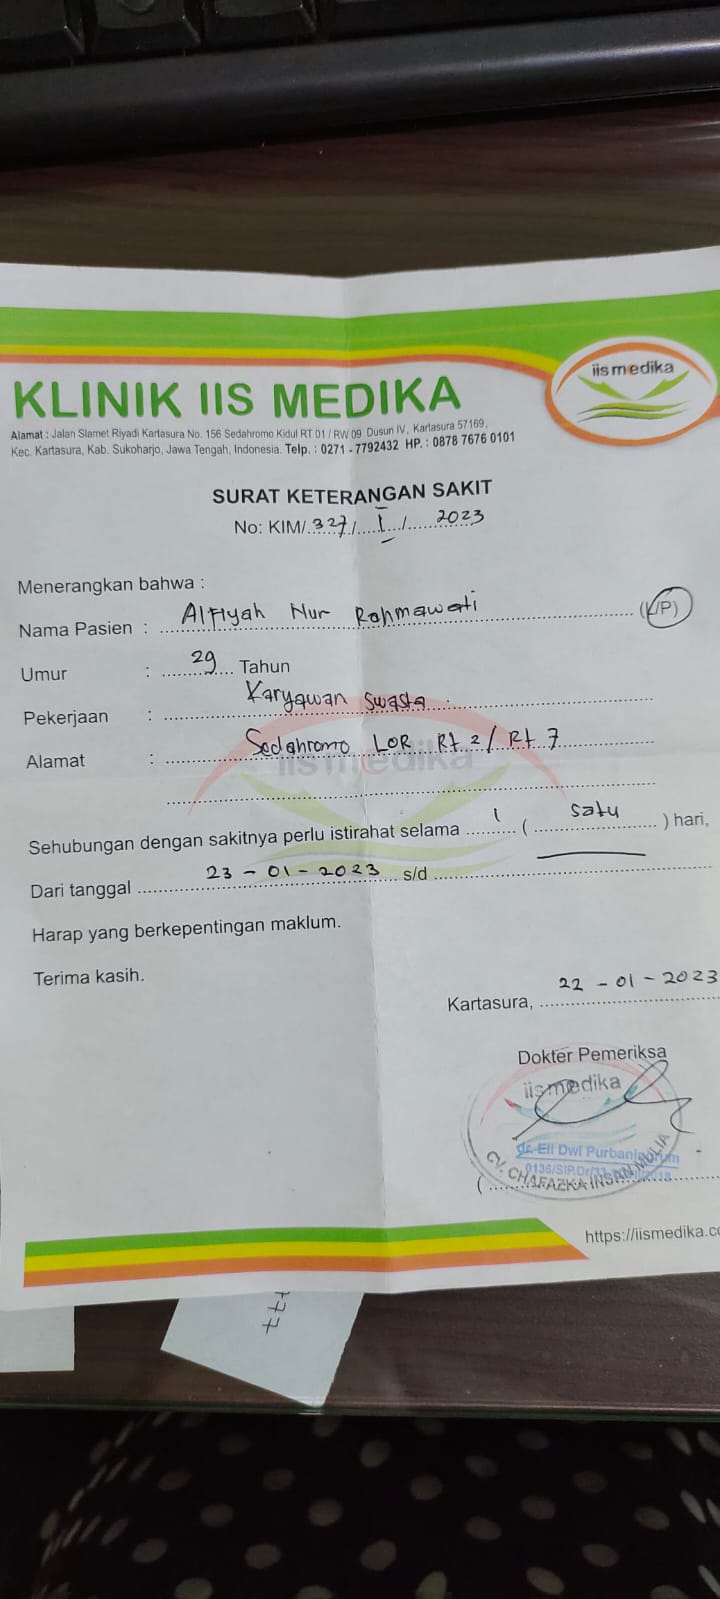 iis medika
KLINIK IIS MEDIKA
Alamat : Jalan Slamet Riyadi Kartasura No. 156 Sedahromo Kidul RT 01 / RW 09 Dusun IV, Kartasura 57169,
Kec. Kartasura, Kab. Sukoharjo, Jawa Tengah, Indonesia. Telp. : 0271 - 7792432 HP. : 0878 7676 0101
SURAT KETERANGAN SAKIT
No: KIM/ 327 / I / 2023
Menerangkan bahwa :
Nama Pasien : Alfiyah Nur Rahmawati (L/P)
Umur : 29 Tahun
Pekerjaan : Karyawan Swasta
Alamat : Sedahromo LOR Rt 2 / Rt 7
iis medika
Sehubungan dengan sakitnya perlu istirahat selama 1 ( satu ) hari,
Dari tanggal 23 - 01 - 2023 s/d
Harap yang berkepentingan maklum.
Terima kasih.
Kartasura, 22 - 01 - 2023
Dokter Pemeriksa
iis medika
dr. Eli Dwi
CV. CHAFAZKA INSAN MULIA
https://iismedika.co